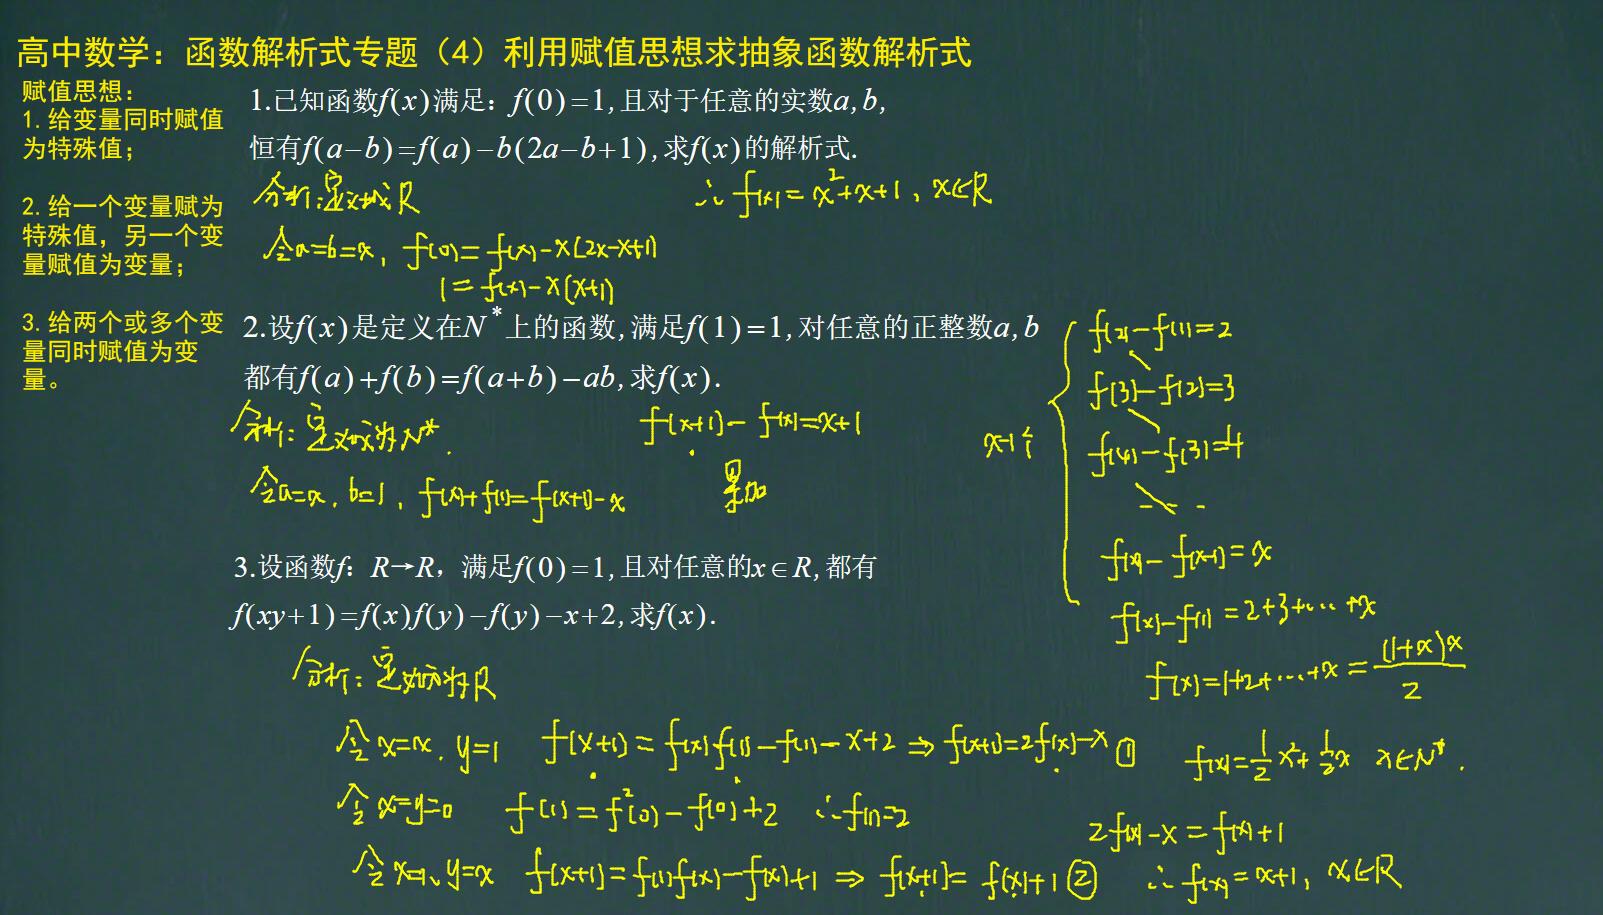 高中数学：函数解析式专题（4）利用赋值思想求抽象函数解析式
赋值思想：
1.给变量同时赋值
为特殊值；
2.给一个变量赋为
特殊值，另一个变
量赋值为变量；
3.给两个或多个变
量同时赋值为变
量。
1.已知函数f(x)满足：f(0)=1,且对于任意的实数a,b,
恒有f(a-b)=f(a)-b(2a-b+1),求f(x)的解析式.
分析:定义域R
令a=b=x, f(0)=f(x)-x(2x-x+1)
1=f(x)-x(x+1)
∴f(x)=x²+x+1, x∈R
2.设f(x)是定义在N*上的函数,满足f(1)=1,对任意的正整数a,b
都有f(a)+f(b)=f(a+b)-ab,求f(x).
分析:定义域为N*.
令a=x, b=1, f(x)+f(1)=f(x+1)-x
f(x+1)-f(x)=x+1
累加
x-1个
f(2)-f(1)=2
f(3)-f(2)=3
f(4)-f(3)=4
f(x)-f(x-1)=x
f(x)-f(1)=2+3+…+x
f(x)=1+2+…+x=(1+x)x/2
f(x)=1/2x²+1/2x x∈N*.
3.设函数f：R→R，满足f(0)=1,且对任意的x∈R,都有
f(xy+1)=f(x)f(y)-f(y)-x+2,求f(x).
分析:定义域为R
令x=x, y=1 f(x+1)=f(x)f(1)-f(1)-x+2⇒f(x+1)=2f(x)-x①
令x=y=0 f(1)=f²(0)-f(0)+2 ∴f(1)=2
令x=1, y=x f(x+1)=f(1)f(x)-f(x)+1⇒f(x+1)=f(x)+1②
2f(x)-x=f(x)+1
∴f(x)=x+1, x∈R